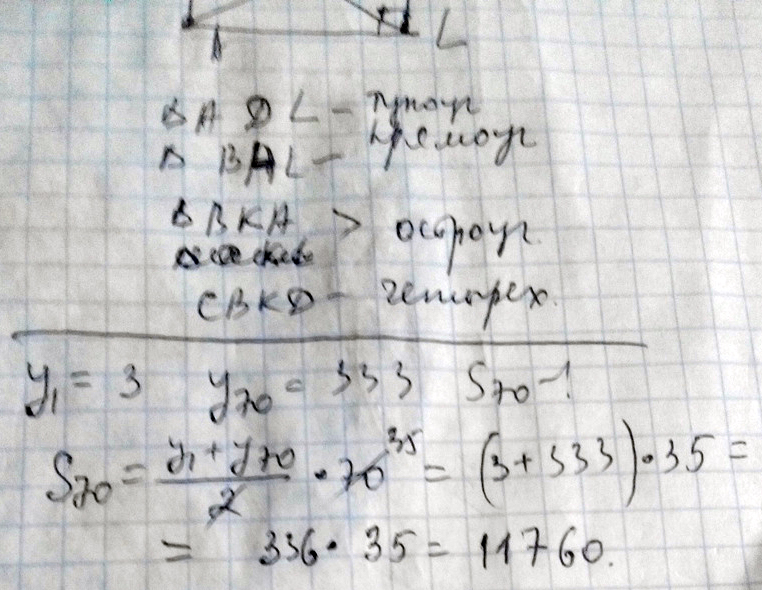 L
Δ A D L - тупоуг
Δ BAL - прямоуг
Δ BKA > остроуг.
CBKD - четырех.
y₁ = 3 y₇₀ = 333 S₇₀ - ?
S₇₀ = (y₁ + y₇₀)/2 · 70 ³⁵ = (3 + 333) · 35 =
= 336 · 35 = 11760.